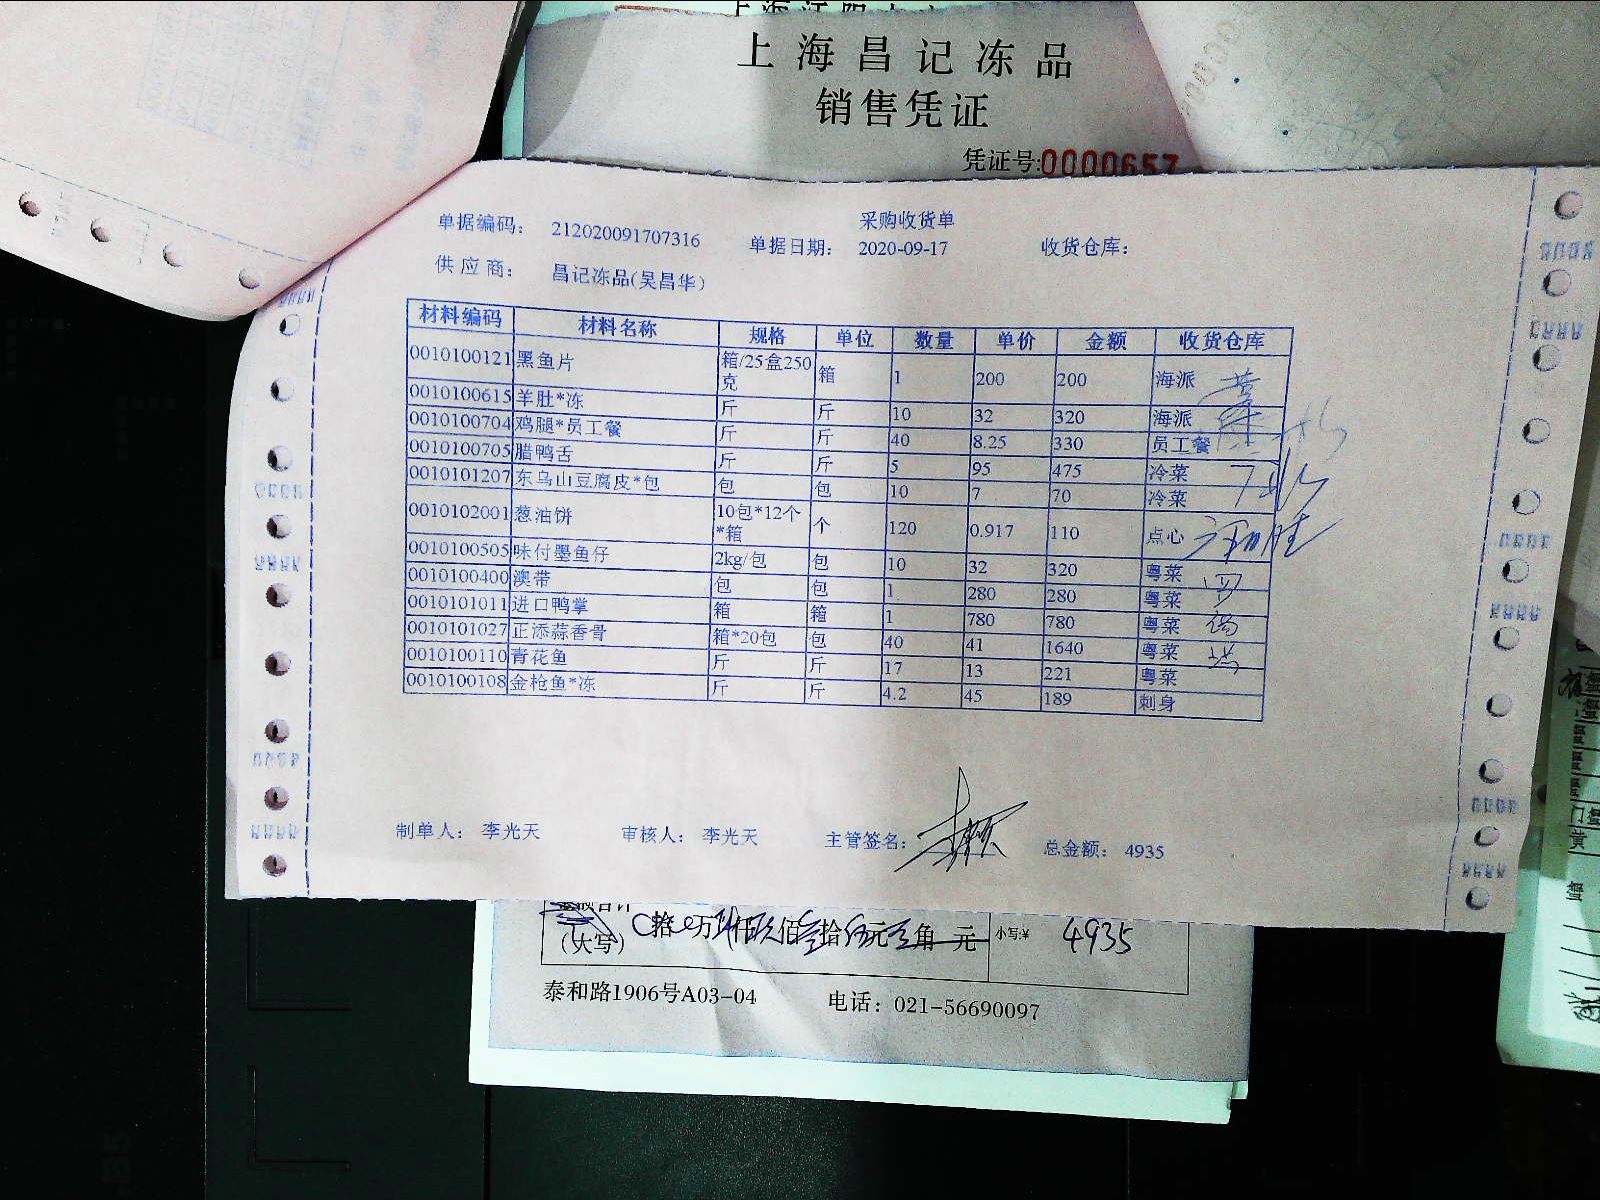 上海昌记冻品
销售凭证
凭证号:0000657
采购收货单
单据编码: 212020091707316 单据日期: 2020-09-17 收货仓库:
供应商: 昌记冻品(吴昌华)
材料编码 材料名称 规格 单位 数量 单价 金额 收货仓库
0010100121 黑鱼片 箱/25盒250克 箱 1 200 200 海派
0010100615 羊肚*冻 斤 斤 10 32 320 海派
0010100704 鸡腿*员工餐 斤 斤 40 8.25 330 员工餐
0010100705 腊鸭舌 斤 斤 5 95 475 冷菜
0010101207 东乌山豆腐皮*包 包 包 10 7 70 冷菜
0010102001 葱油饼 10包*12个*箱 个 120 0.917 110 点心
0010100505 味付墨鱼仔 2kg/包 包 10 32 320 粤菜
0010100400 澳带 包 包 1 280 280 粤菜
0010101011 进口鸭掌 箱 箱 1 780 780 粤菜
0010101027 正添蒜香骨 箱*20包 包 40 41 1640 粤菜
0010100110 青花鱼 斤 斤 17 13 221 粤菜
0010100108 金枪鱼*冻 斤 斤 4.2 45 189 刺身
制单人: 李光天 审核人: 李光天 主管签名: 总金额: 4935
(大写) 拾 万 仟 佰 拾 元 角 元 小写:¥ 4935
泰和路1906号A03-04 电话: 021-56690097